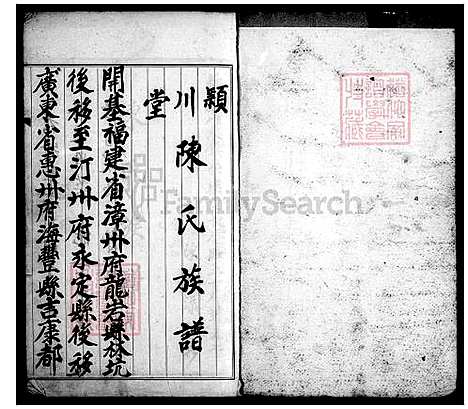 穎川陳氏族譜
堂
開基福建省漳州府龍岩縣林坑
後移至汀州府永定縣後移
廣東省惠州府海豐縣吉康都
FamilySearch